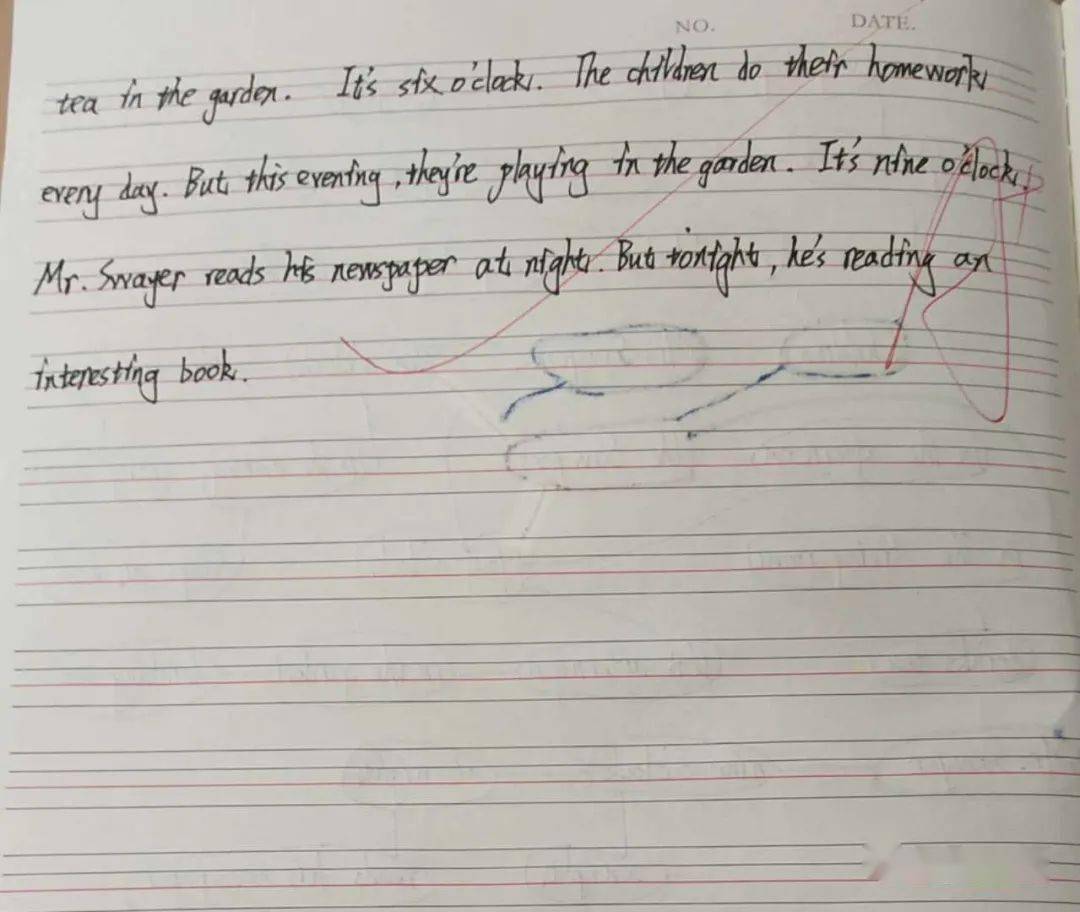 NO. DATE.
tea in the garden. It's six o'clock. The children do their homework
every day. But this evening, they're playing in the garden. It's nine o'clock.
Mr. Swayer reads his newspaper at night. But tonight, he's reading an
interesting book.